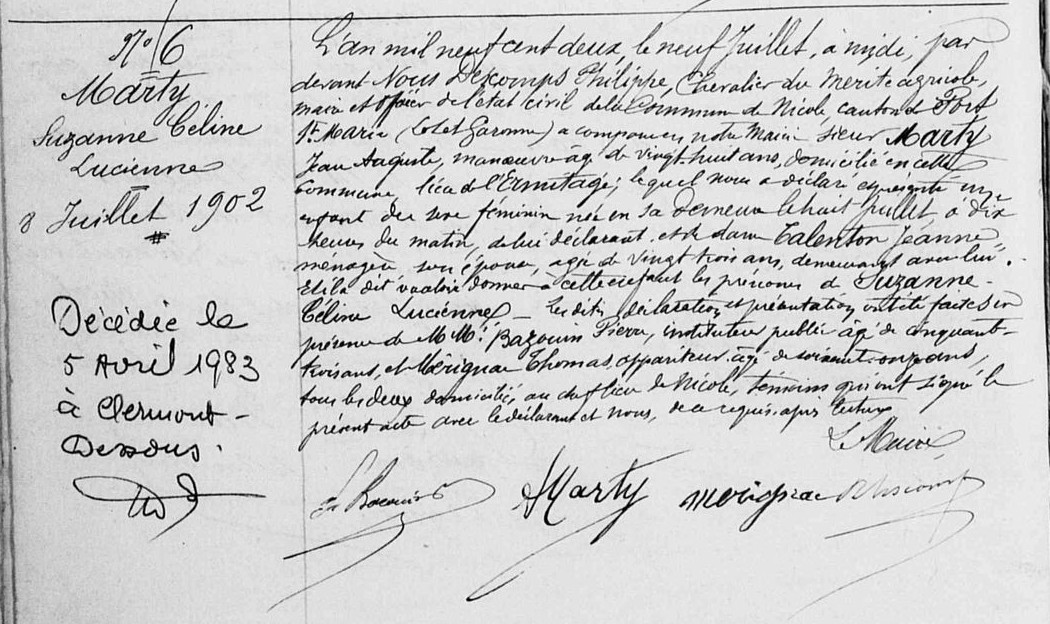 N° 6
Marty
Suzanne Céline
Lucienne
8 Juillet 1902
Décédée le
5 Avril 1983
à Clermont-
Dessous.
L'an mil neuf cent deux, le neuf Juillet, à midi, par
devant Nous Descomps Philippe, Chevalier du Mérite agricole,
maire et officier de l'état civil de la Commune de Nicole, canton de Port
Ste Marie (Lot et Garonne) a comparu en notre Mairie sieur Marty
Jean Auguste, manœuvre âgé de vingt-huit ans, domicilié en cette
Commune, lieu de l'Ermitage; lequel nous a déclaré et présenté un
enfant du sexe féminin née en sa demeure le huit juillet, à dix
heures du matin, de lui déclarant, et de dame Talenton Jeanne,
ménagère, son épouse, agée de vingt trois ans, demeurant avec lui.
Et il a dit vouloir donner à cette enfant les prénoms de Suzanne-
Céline Lucienne — Les dites déclaration et présentation ont été faites en
présence de M.M. Bazouin Pierre, instituteur public âgé de cinquante-
trois ans, et Mérignac Thomas, appariteur, âgé de soixante-onze ans,
tous les deux domiciliés au chef lieu de Nicole, témoins qui ont signé le
présent acte avec le déclarant et nous, de ce requis, après lecture
Le Maire,
Marty Merignac